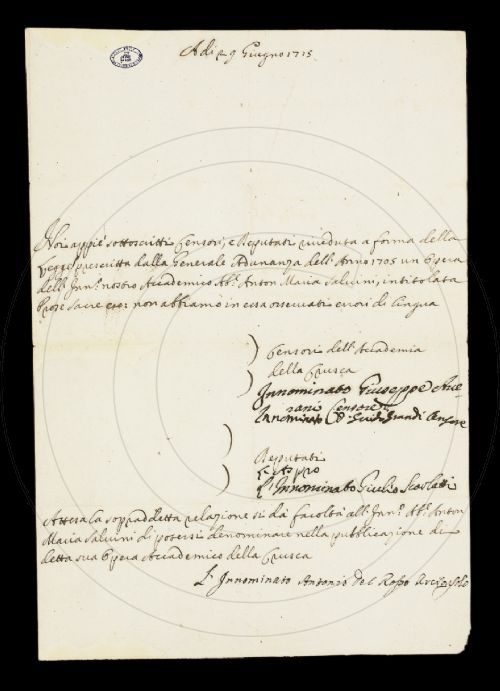 Adi 29 Giugno 1715
Noi appiè sottoscritti Censori, e Deputati riveduta a forma della
Legge prescritta dalla Generale Adunanza dell'Anno 1705 un Opera
dell'Inn.º nostro Accademico Ab.e Anton Maria Salvini, intitolata
Prose sacre etc: non abbiamo in essa osservati errori di lingua
Censori dell'Accademia
della Crusca
Innominato Giuseppe Ave-
rani Censore
Innominato D. Guido Grandi Censore
Deputati
L'Innominato Giulio Scarlatti
Attesa la sopraddetta relazione si dà facoltà all'Inn.º Ab.e Anton
Maria Salvini di potersi denominare nella pubblicazione di
detta sua Opera Accademico della Crusca
L'Innominato Antonio del Rosso Arcics.lo